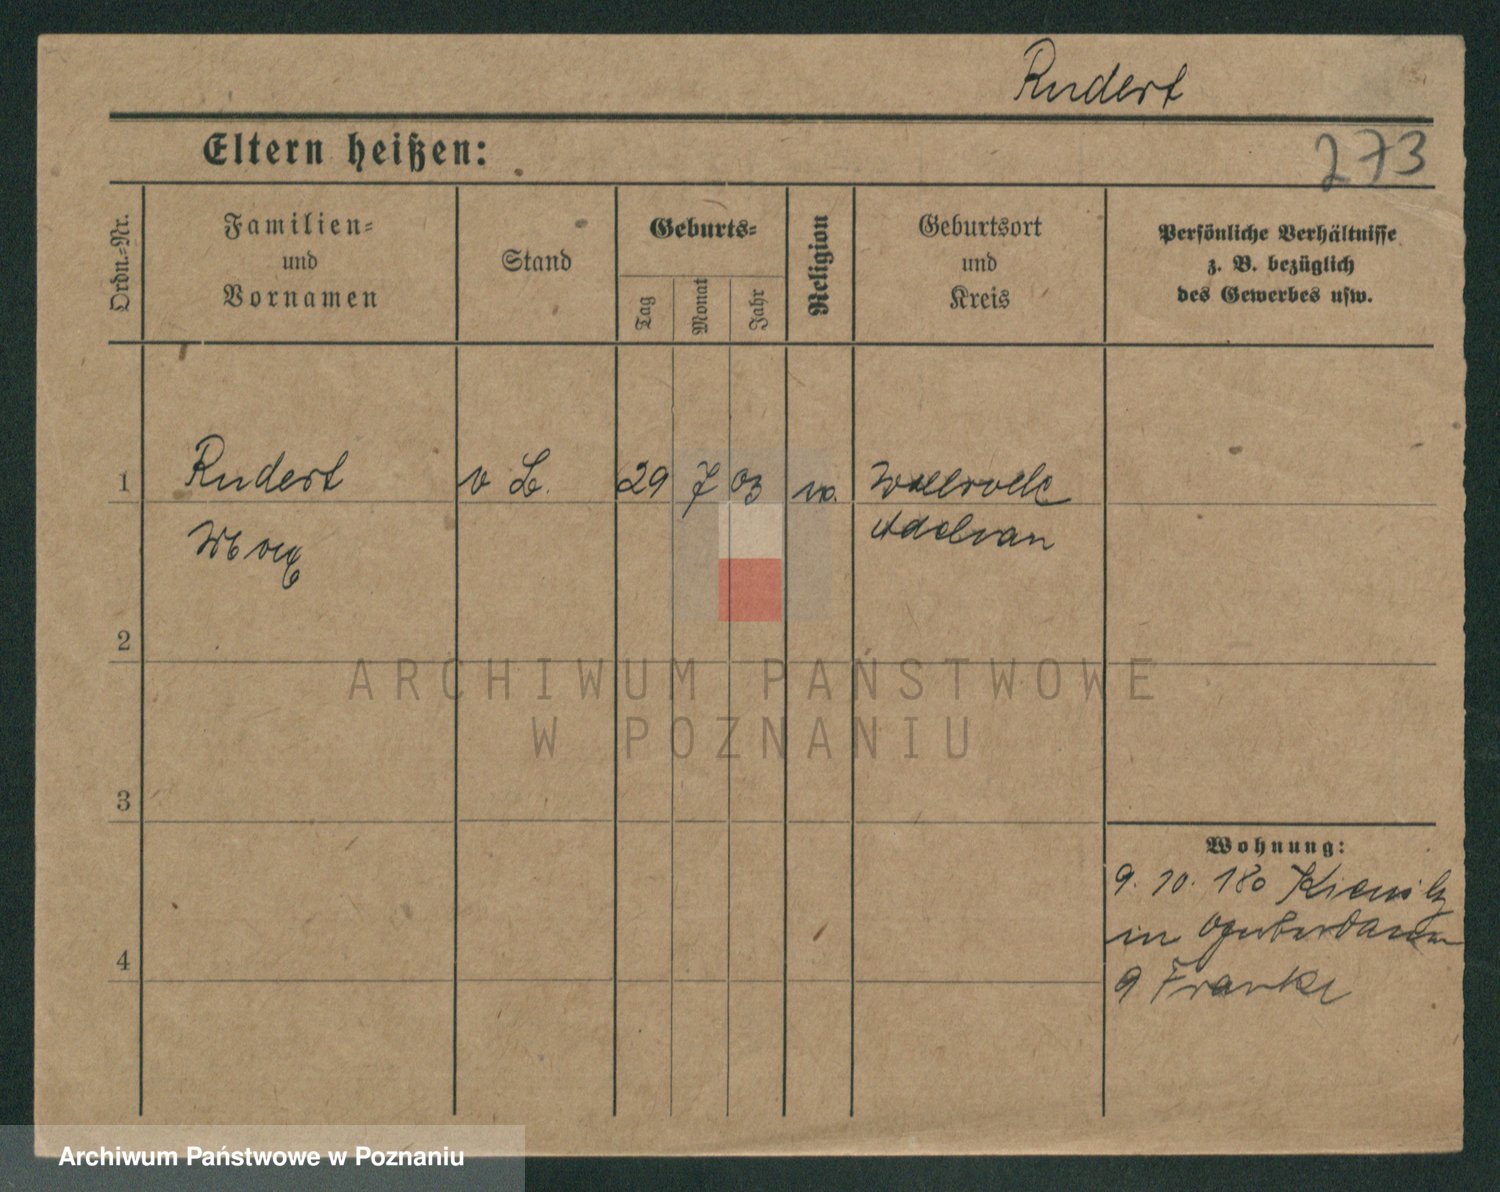 Rudert
Eltern heißen:
273
Ordn.-Nr.
Familien-
und
Vornamen
Stand
Geburts-
Tag
Monat
Jahr
Religion
Geburtsort
und
Kreis
Persönliche Verhältnisse
z. B. bezüglich
des Gewerbes usw.
1 Rudert v L. 29 7 03
2
3
4
Wohnung:
9. 10. 180
in
9 Franke
ARCHIWUM PAŃSTWOWE
W POZNANIU
Archiwum Państwowe w Poznaniu